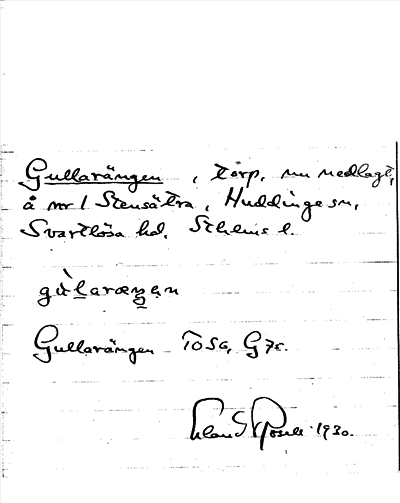 Gullarängen, torp, nu nedlagt,
å nr 1 Stensätra, Huddinge sn,
Svartlösa hd. Sthlms l.
gùlaræŋən
Gullarängen TOSG, G
1930.